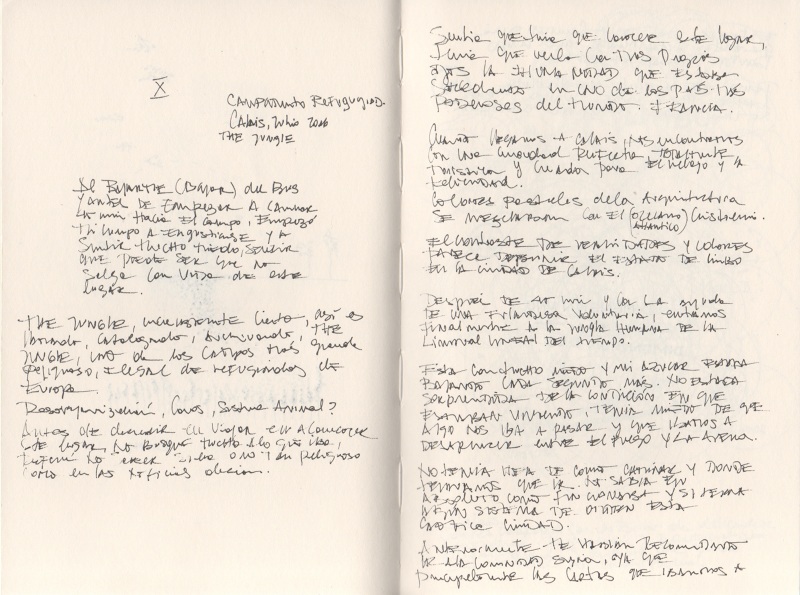 X
CAMPAMENTO REFUGIADO.
CALAIS, Julio 2016
THE JUNGLE
Al (BAJAR) del BUS
Y ANTES DE EMPEZAR A CAMINAR
HACIA EL CAMPO, EMPEZÓ
MI CUERPO A ANGUSTIARSE Y A
SENTIR MUCHO MIEDO, SENTIR
QUE PUEDE SER QUE NO
SALGA CON VIDA DE ESTE
LUGAR.
THE JUNGLE, cierto, así es
llamado, catalogado, THE
JUNGLE, UNO de los CAMPOS MÁS grande
peligroso, ILEGAL DE refugiados de
Europa.
Desorganización, Caos, Sistema Animal?
Antes de decidir en viajar a conocer
este lugar, NO BUSQUE MUCHO,
NO creer si era o no TAN peligroso
como en las noticias decían.
Sentía que tenía que conocer este lugar,
tenía que verlo con MIS PROPIOS
OJOS LA INHUMANIDAD QUE ESTABA
SUCEDIENDO en UNO de los PAÍS MÁS
PODEROSOS del MUNDO. FRANCIA.
Cuando llegamos A CALAIS, nos encontramos
con una ciudad PERFECTA, TOTALMENTE
TURÍSTICA y creada para EL RELAJO Y LA
FELICIDAD.
COLORES PASTELES de la Arquitectura
SE MEZCLABAN con El (OCEANO ATLANTICO)
EL CONTRASTE DE REALIDADES Y COLORES
PARECE EL ESTADO DE LIMBO
EN LA CIUDAD DE CALAIS.
DESPUÉS DE 40 min y con LA ayuda
DE UNA FINLANDESA Voluntaria, entramos
FINALMENTE A LA JUNGLA HUMANA DE LA
DEL TIEMPO.
ESTABA con MUCHO MIEDO y MI AZUCAR ESTABA
BAJANDO CADA SEGUNDO MÁS. NO ESTABA
SORPRENDIDA DE LA CONDICIÓN EN QUE
ESTABAN VIVIENDO, TENÍA MIEDO DE QUE
ALGO NOS IBA A PASAR y que ÍBAMOS A
DESAPARECER ENTRE EL FUEGO Y LA ARENA.
NO TENÍA IDEA DE COMO CAMINAR Y DONDE
TENÍAMOS QUE IR. NO SABÍA EN
ABSOLUTO COMO FUNCIONABA Y SI TENÍA
ALGÚN SISTEMA DE ORDEN ESTA
CIUDAD.
ANTERIORMENTE ME HABÍAN RECOMENDADO
IR A LA COMUNIDAD SYRIA, YA QUE
principalmente las CARTAS QUE ÍBAMOS A